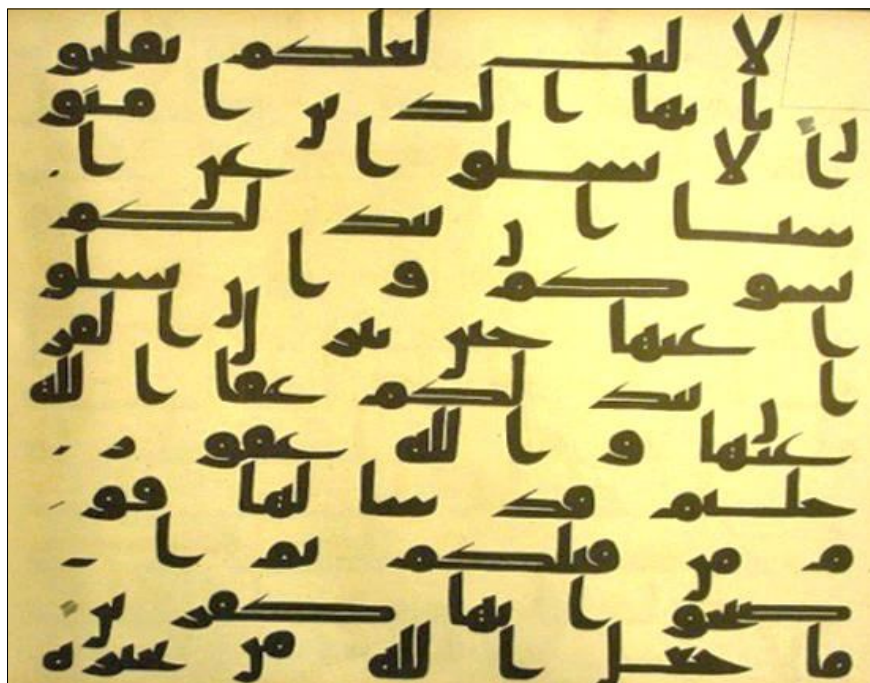 لا لبب لعلكم تفلحو
ن يايها الذين امنو
ا لا تسلوا عن ا
شيا ان تبد لكم
تسوكم وان تسلو
ا عنها حين ينزل القر
ان تبد لكم عفا الله
عنها والله غفور
حليم قد سالها قو
م من قبلكم ثم ا
صبحوا بها كفرين
ما جعل الله من بحيره